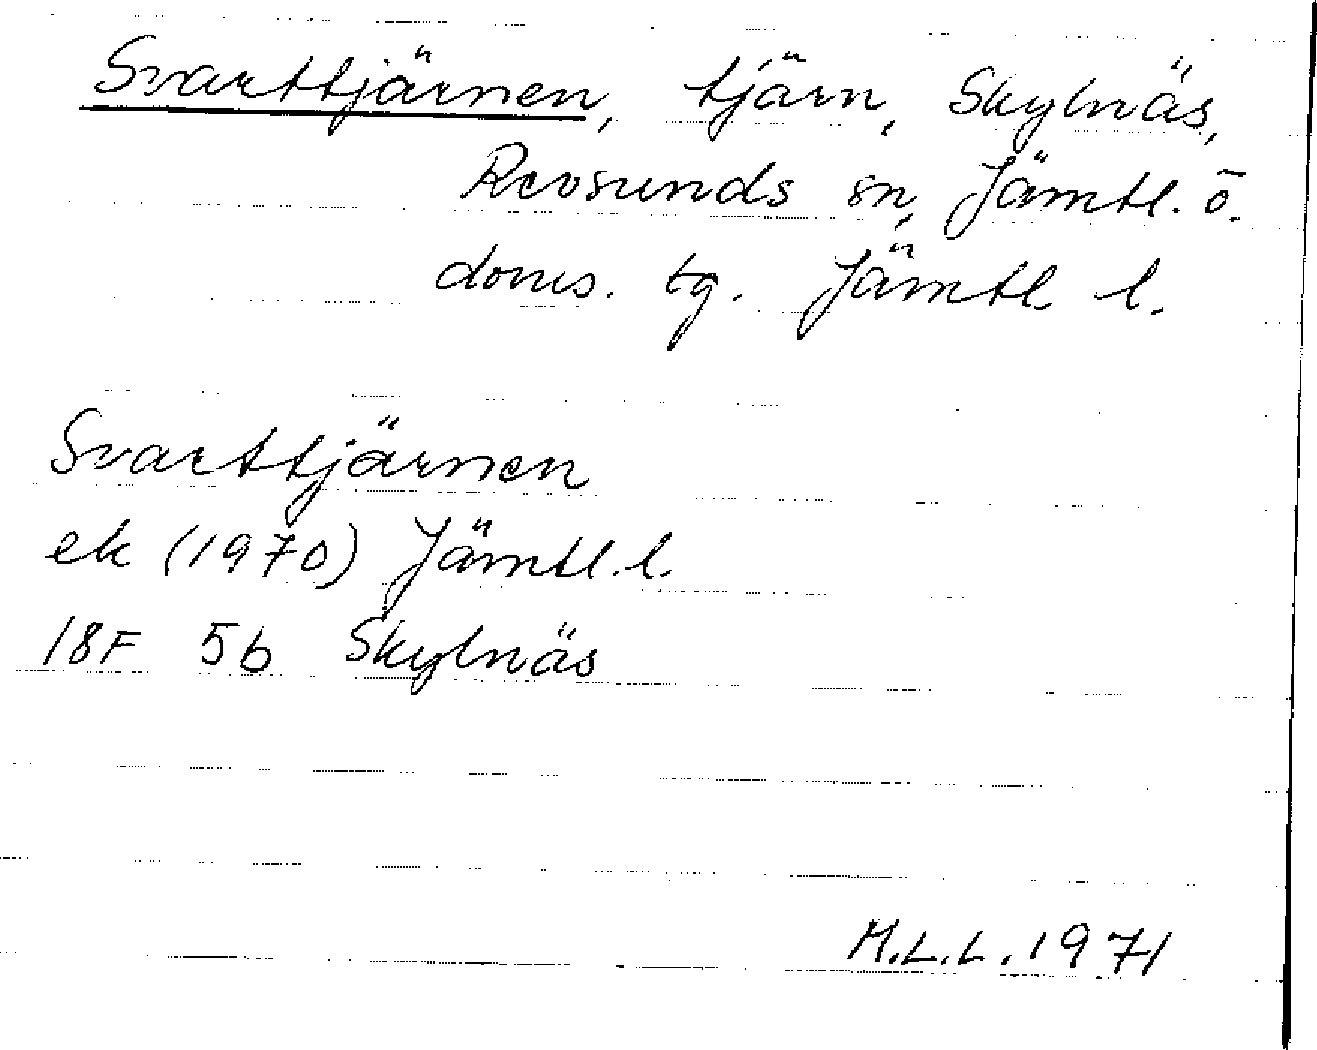 Svarttjärnen, tjärn, Skylnäs,
Revsunds sn, Jämtl. ö.
doms. tg. Jämtl l.
Svarttjärnen
ek (1970) Jämtl. l.
18F 5b Skylnäs
M.L.L. 1971